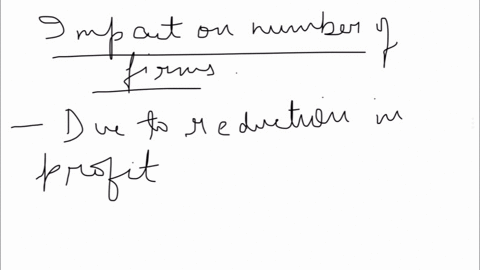 Impact on number of
firms.
— Due to reduction in
profit